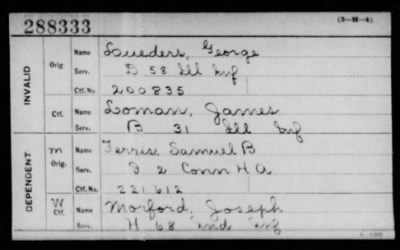 288333
(3-M-4)
INVALID
Orig
Name Lueders, George
Serv. D 58 Ill Inf
Ctf. No. 200835
Ctf.
Name Loman, James
Serv. B 31 Ill Inf
DEPENDENT
M Orig.
Name Ferris, Samuel B
Serv. I 2 Conn H A
Ctf. No. 221612
W Ctf.
Name Morford, Joseph
Serv. H 68 Ind Inf